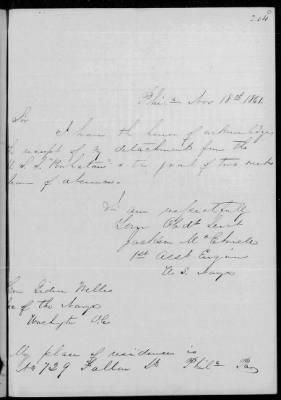 204
Phil<sup>a</sup> Nov 18th 1861.
Sir
I have the honor of acknowledge
the receipt of my detachment from the
U.S.S. "Powhatan" & the grant of two weeks
leave of absence.
I am respectfully
Your Obdt Servt
Jackson McElmell
1st Asst Engineer
U.S. Navy
Hon Gideon Welles
of the Navy
Washgtn DC
My place of residence is
No 729 Fallon St Phila Pa